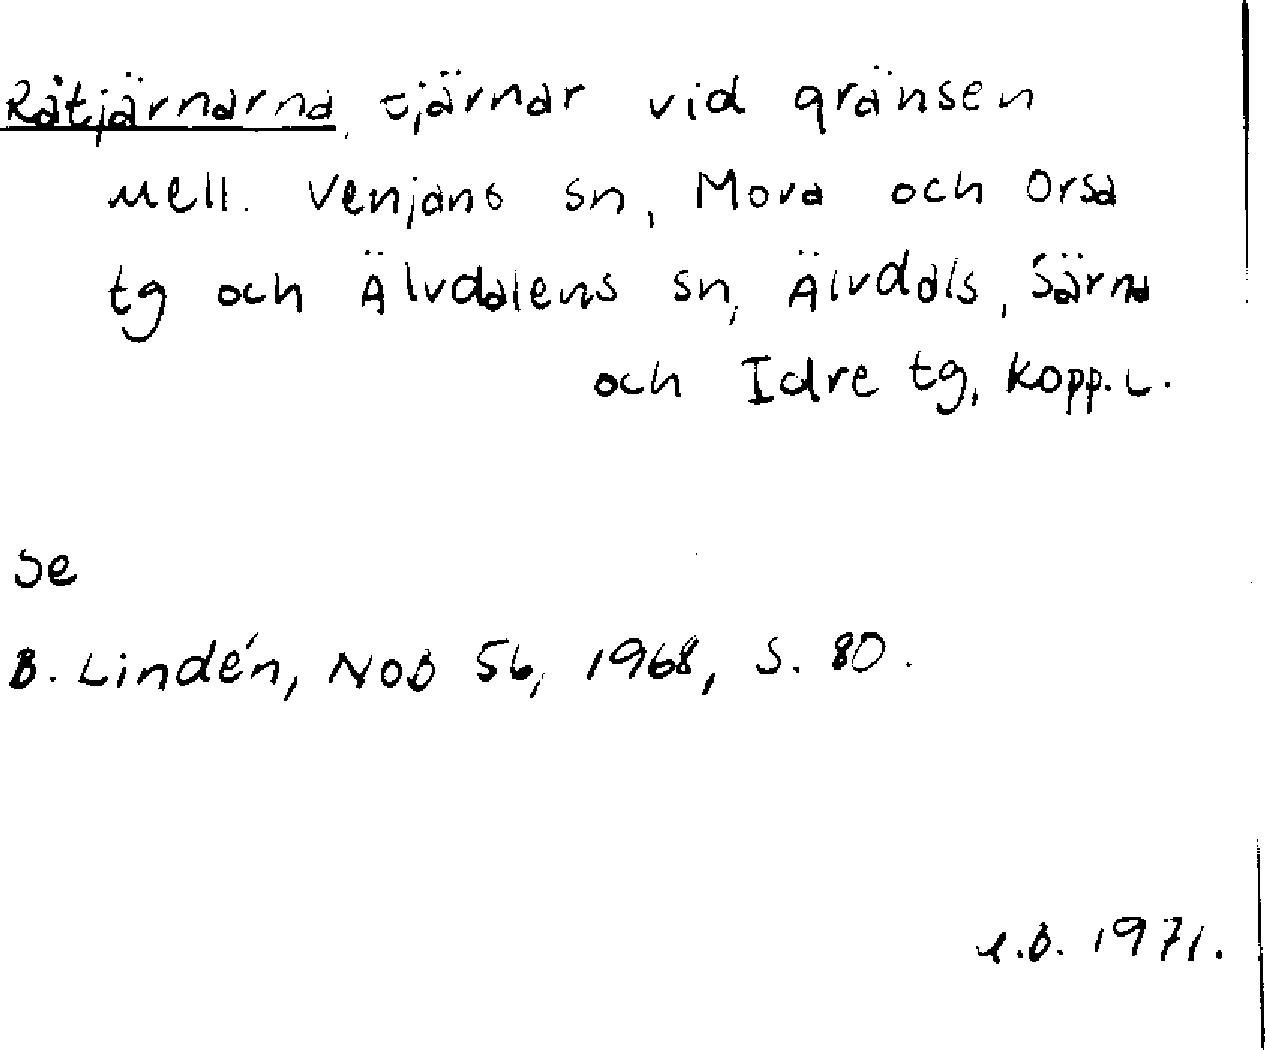 Råtjärnarna, tjärnar vid gränsen
mell. Venjans sn, Mora och Orsa
tg och Älvdalens sn, Älvdals, Särna
och Idre tg, Kopp. L.
Se
B. Lindén, NoB 56, 1968, S. 80.
e.b. 1971.